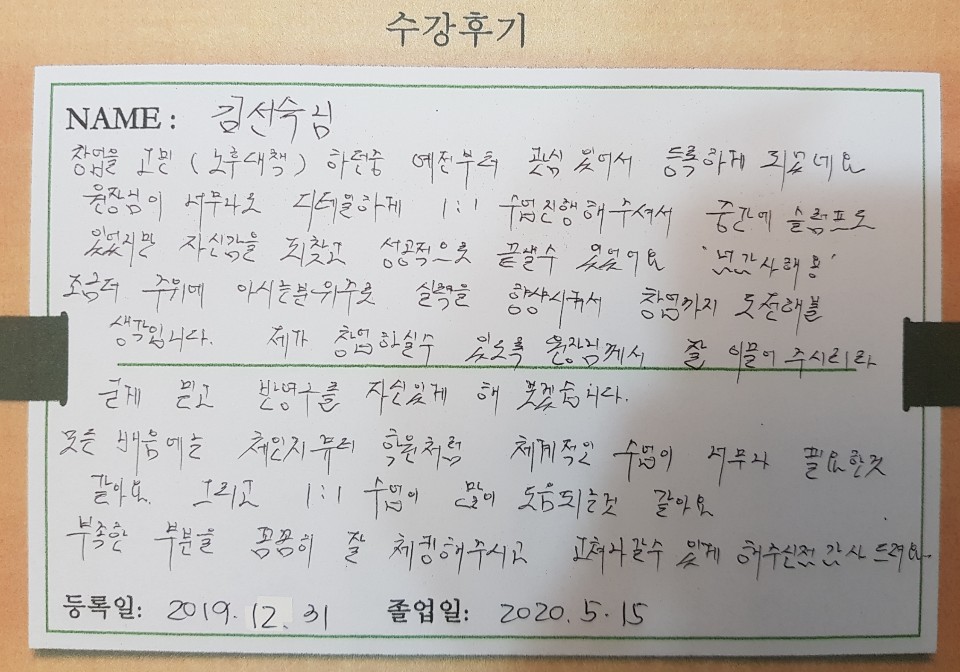 수강후기
NAME : 김선숙님
창업을 고민 (노후대책) 하던중 예전부터 관심 있어서 등록하게 되었네요
원장님이 너무나도 디테일하게 1:1 수업진행해주셔서 중간에 슬럼프도
있었지만 자신감을 되찾고 성공적으로 끝낼수 있었어요
조금더 주위에 아시는분위주로 실력을 향상시켜서 창업까지 도전해볼
생각입니다. 제가 창업하실수 있도록 원장님께서 잘 이끌어주시리라
굳게 믿고 반영구를 자신있게 해 보겠습니다.
모든 배움에는 체인지뷰티 학원처럼 체계적인 수업이 너무나 필요한것
같아요. 그리고 1:1 수업이 많이 도움되는것 같아요
부족한 부분을 꼼꼼히 잘 체킹해주시고 고쳐나갈수 있게 해주신점 감사드려요
등록일: 2019. 12. 31 졸업일: 2020. 5. 15